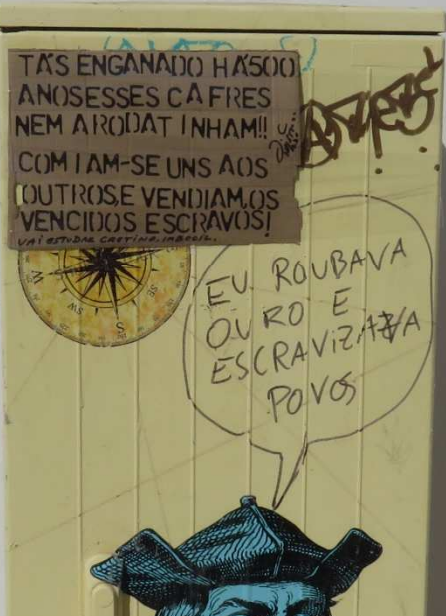 TÁS ENGANADO HÁ500
ANOSESSES CAFRES
NEM A RODAT INHAM!!
COMIAM-SE UNS AOS
OUTROS,E VENDIAM,OS
VENCIDOS ESCRAVOS!
VAI ESTUDAR CRETINO, IMBECIL.
W
SW
S
SE
E
EU ROUBAVA
OURO E
ESCRAVIZAVA
POVOS